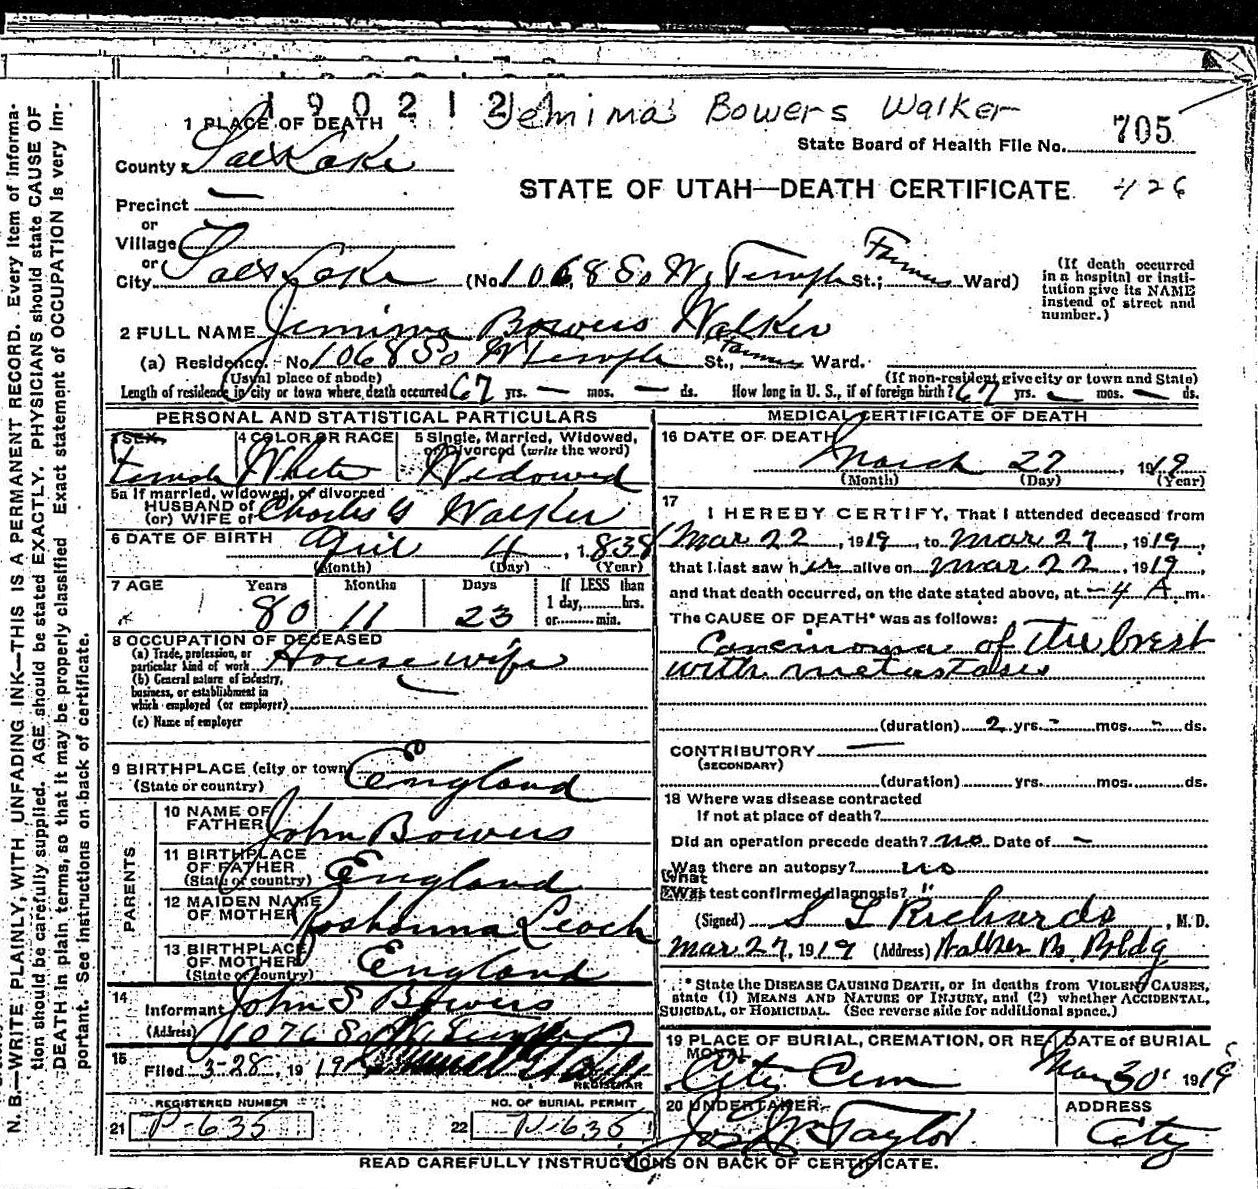 190212 Jemima Bowers Walker
1 PLACE OF DEATH
State Board of Health File No. 705
County Salt Lake
STATE OF UTAH—DEATH CERTIFICATE 426
Precinct —
or
Village
or
City Salt Lake (No. 1068 So W. Temple St.; Ward)
(If death occurred
in a hospital or insti-
tution give its NAME
instead of street and
number.)
2 FULL NAME Jemima Bowers Walker
(a) Residence. No. 1068 So W Temple St., Ward.
(Usual place of abode) (If non-resident give city or town and State)
Length of residence in city or town where death occurred 67 yrs. — mos. — ds. How long in U. S., if of foreign birth? 67 yrs. — mos. — ds.
PERSONAL AND STATISTICAL PARTICULARS
3 SEX 4 COLOR OR RACE 5 Single, Married, Widowed,
or Divorced (write the word)
Female White Widowed
5a If married, widowed, or divorced
HUSBAND of
(or) WIFE of Charles G Walker
6 DATE OF BIRTH April 4, 1838
(Month) (Day) (Year)
7 AGE Years Months Days If LESS than
1 day,........hrs.
or........min.
80 11 23
8 OCCUPATION OF DECEASED
(a) Trade, profession, or
particular kind of work House wife
(b) General nature of industry,
business, or establishment in
which employed (or employer)
(c) Name of employer
9 BIRTHPLACE (city or town)
(State or country) England
PARENTS
10 NAME OF
FATHER John Bowers
11 BIRTHPLACE
OF FATHER
(State or country) England
12 MAIDEN NAME
OF MOTHER Roshanna Leach
13 BIRTHPLACE
OF MOTHER
(State or country) England
14
Informant John S Bowers
(Address) 1076 So W Temple
15
Filed 3-28, 1919
REGISTRAR
REGISTERED NUMBER NO. OF BURIAL PERMIT
21 P-635 22 N-635
MEDICAL CERTIFICATE OF DEATH
16 DATE OF DEATH
March 27, 1919
(Month) (Day) (Year)
17
I HEREBY CERTIFY, That I attended deceased from
Mar 22, 1919, to Mar 27, 1919,
that I last saw her alive on Mar 22, 1919,
and that death occurred, on the date stated above, at -4 A m.
The CAUSE OF DEATH* was as follows:
Carcinoma of the brest
with metastases
(duration) 2 yrs. - mos. - ds.
CONTRIBUTORY —
(SECONDARY)
(duration) yrs. mos. ds.
18 Where was disease contracted
If not at place of death?
Did an operation precede death? no Date of -
Was there an autopsy? no
What
test confirmed diagnosis? "
(Signed) S L Richards, M. D.
Mar 27, 1919 (Address) Walker B. Bldg
* State the DISEASE CAUSING DEATH, or in deaths from VIOLENT CAUSES,
state (1) MEANS AND NATURE OF INJURY, and (2) whether ACCIDENTAL,
SUICIDAL, or HOMICIDAL. (See reverse side for additional space.)
19 PLACE OF BURIAL, CREMATION, OR RE- DATE of BURIAL
MOVAL
City Cem Mar 30 1919
20 UNDERTAKER ADDRESS
Jos Wm Taylor City
READ CAREFULLY INSTRUCTIONS ON BACK OF CERTIFICATE.
N. B.—WRITE PLAINLY, WITH UNFADING INK—THIS IS A PERMANENT RECORD. Every item of informa-
tion should be carefully supplied. AGE should be stated EXACTLY. PHYSICIANS should state CAUSE OF
DEATH in plain terms, so that it may be properly classified. Exact statement of OCCUPATION is very im-
portant. See instructions on back of certificate.